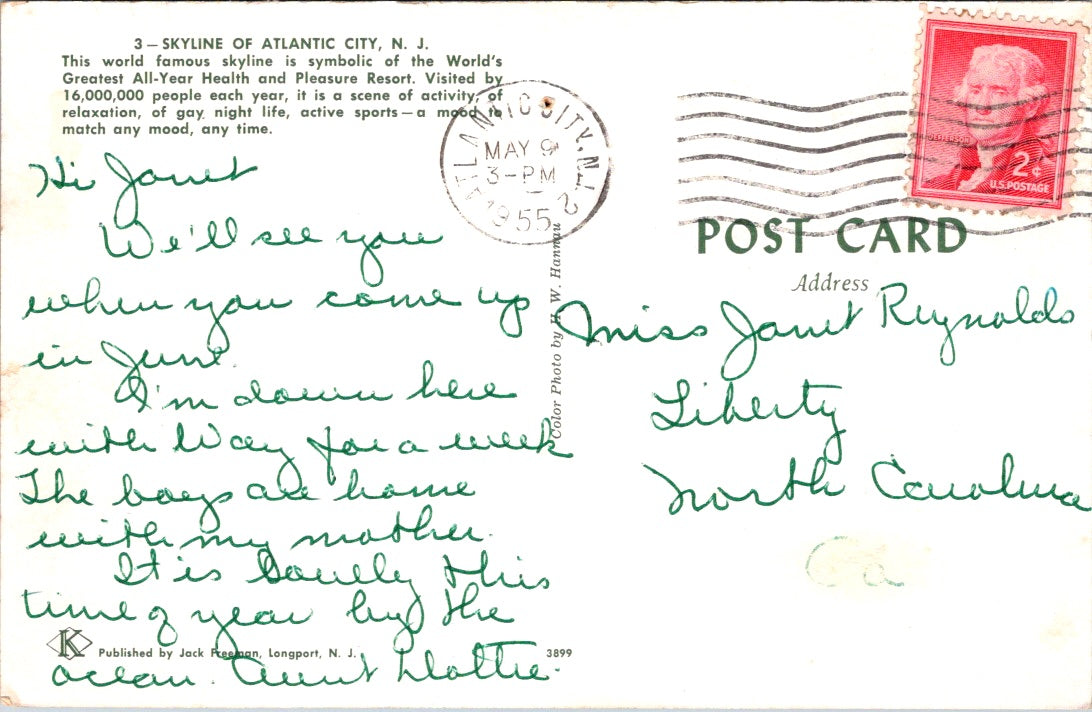 3 – SKYLINE OF ATLANTIC CITY, N. J.
This world famous skyline is symbolic of the World's
Greatest All-Year Health and Pleasure Resort. Visited by
16,000,000 people each year, it is a scene of activity, of
relaxation, of gay night life, active sports — a mood to
match any mood, any time.
Hi Janet
We'll see you
when you come up
in June.
I'm down here
with Way for a week
The boys are home
with my mother.
It is lovely this
time of year by the
ocean. Aunt Dottie.
K
Published by Jack Freeman, Longport, N. J.
3899
Color Photo by H. W. Hannau
ATLANTIC CITY, N.J. 2
MAY 9
3-PM
1955
JEFFERSON
2¢
U.S. POSTAGE
POST CARD
Address
Miss Janet Reynolds
Liberty
North Carolina
Ca